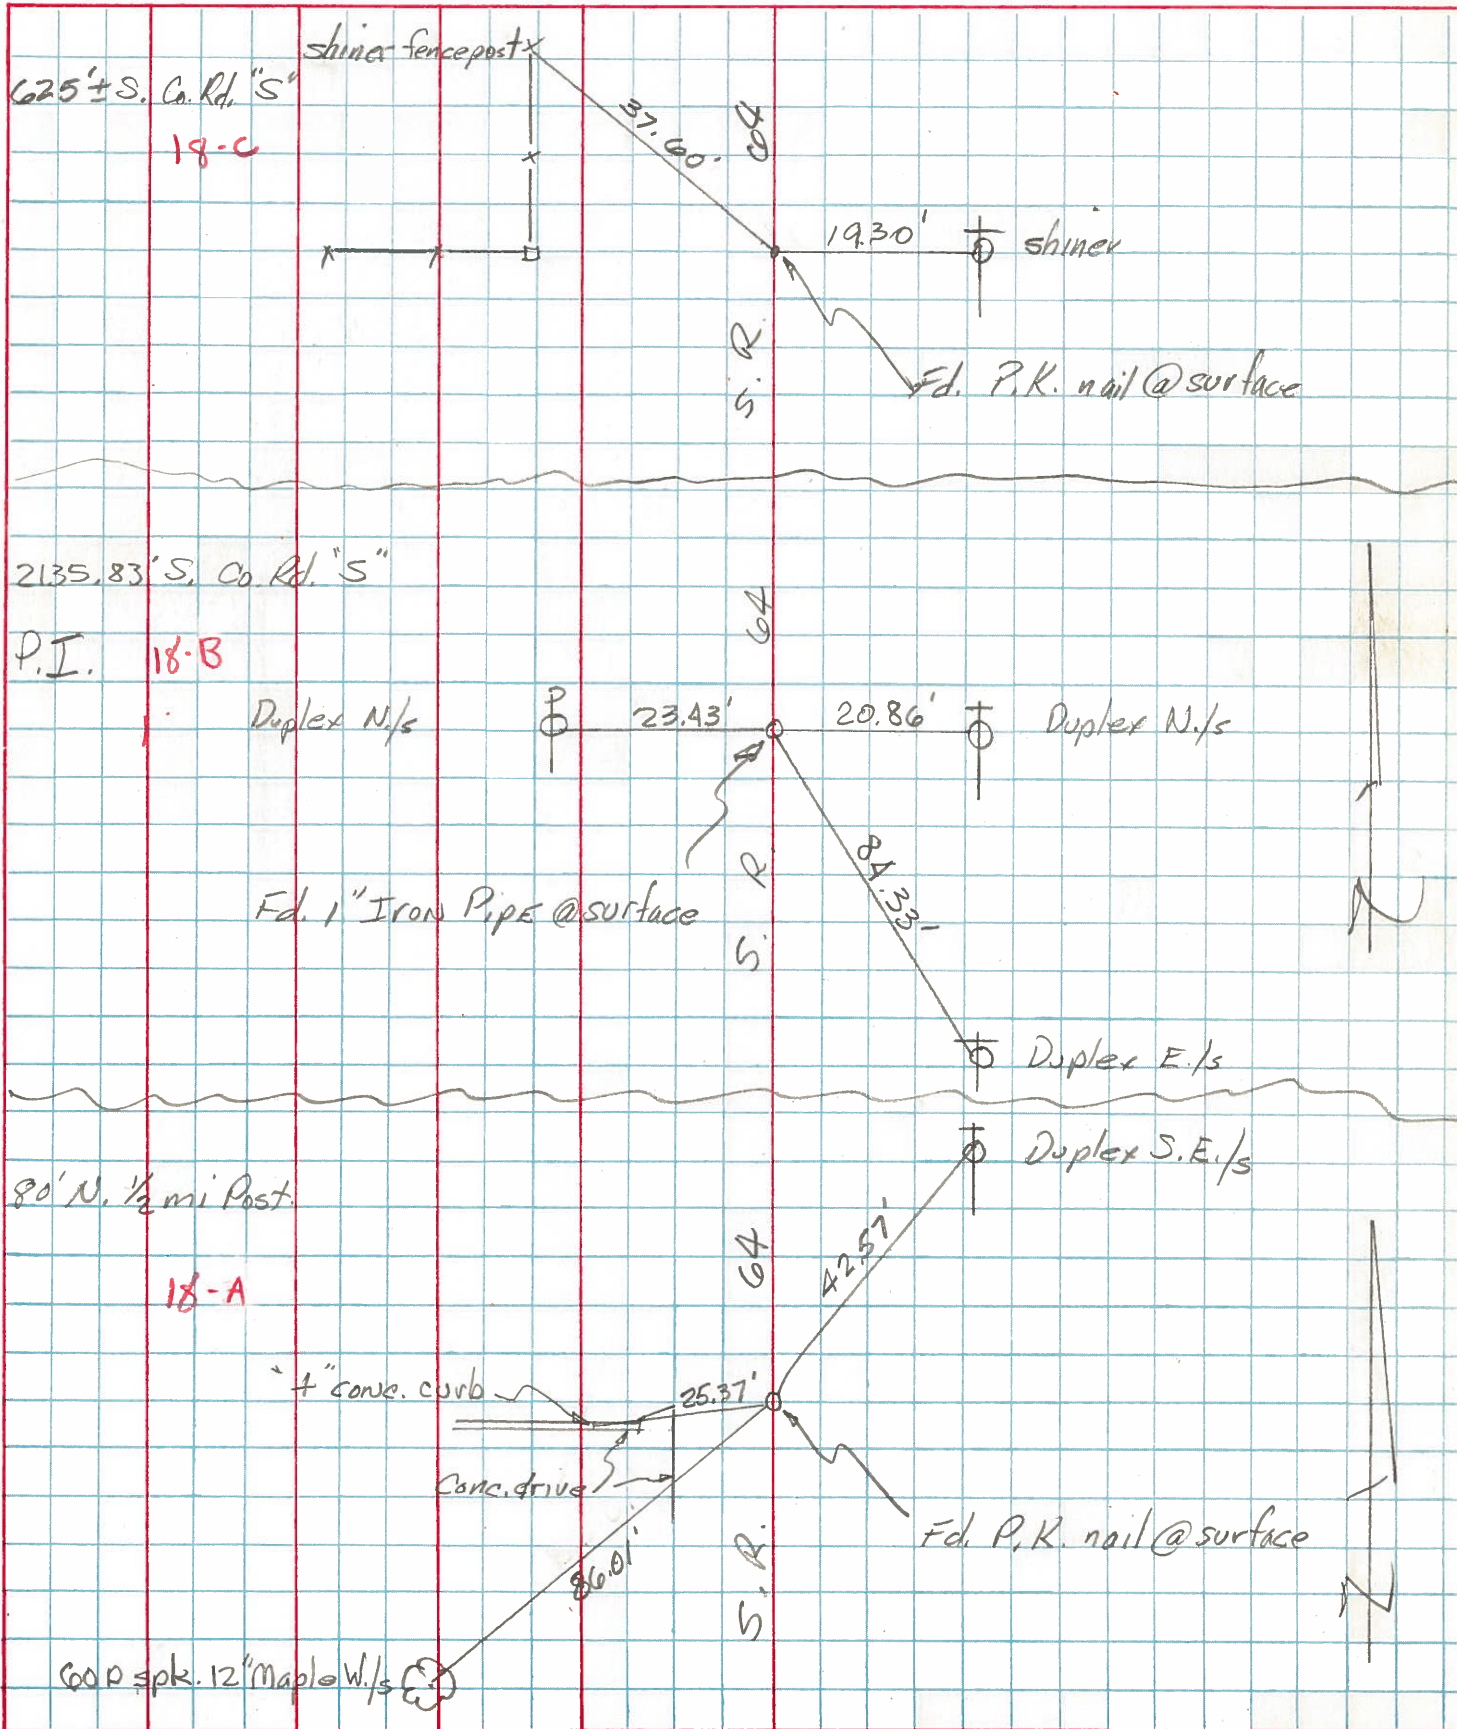 shiner fencepost
625'± S. Co. Rd. "S"
18-C
37.60'
64
19.30'
shiner
S. R.
Fd. P.K. nail @ surface
2135.83' S. Co. Rd. "S"
P.I.
18-B
64
Duplex N./s
P
23.43'
20.86'
Duplex N./s
84.33'
S. R
Fd. 1" IRON PIPE @ surface
N
Duplex E./s
Duplex S.E./s
80' N. 1/2 mi Post.
42.57'
64
18-A
"+" conc. curb
25.37'
Conc. drive
Fd. P.K. nail @ surface
S. R.
86.01'
N
60D spk. 12" Maple W./s